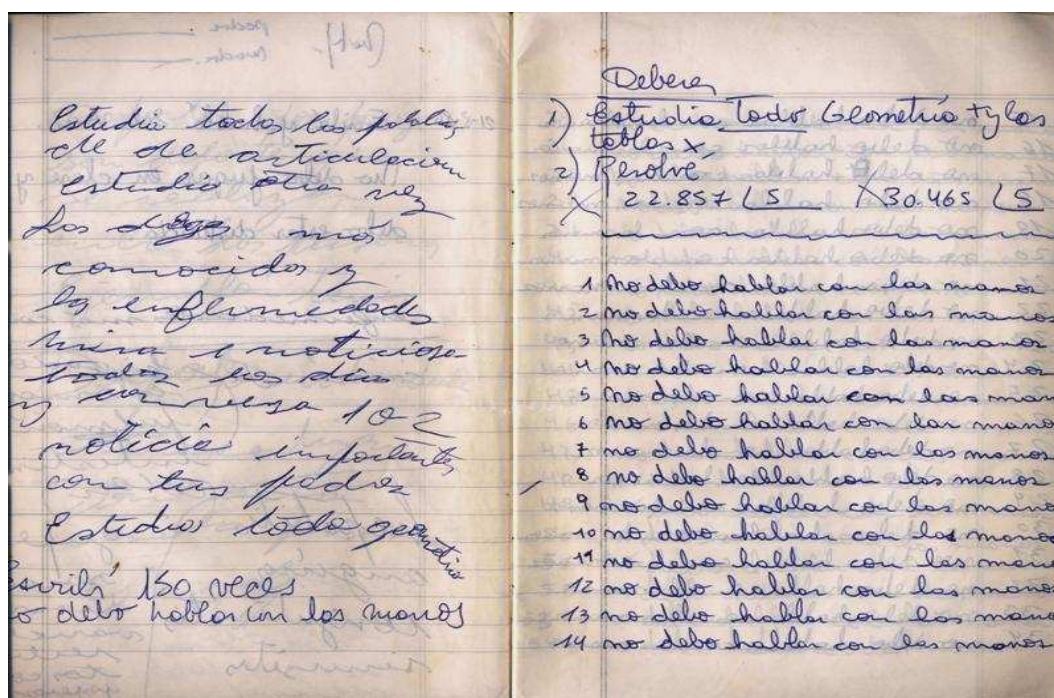 Estudia todas las palabras
de de articulación
estudia otra vez
Los más
conocidos y
las enfermedades
mira 1 noticioso
todos los días
y conversa 1 o 2
noticia importantes
con tus padres
Estudia todo geometría
escribí 150 veces
no debo hablar con las manos
Deberes
1) Estudia Todo Geometría + y las
tablas x,
2) Resolvé
22.857 5 30.465 5
1 no debo hablar con las manos
2 no debo hablar con las manos
3 no debo hablar con las manos
4 no debo hablar con las manos
5 no debo hablar con las man
6 no debo hablar con las mano
7 no debo hablar con las manos
8 no debo hablar con las manos
9 no debo hablar con las mano
10 no debo hablar con las manos
11 no debo hablar con las mano
12 no debo hablar con las mano
13 no debo hablar con las mano
14 no debo hablar con las manos